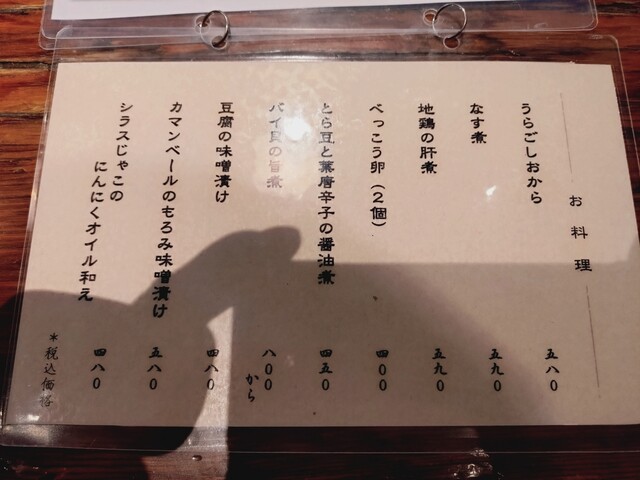 お料理
うらごしおから 五八〇
なす煮 五九〇
地鶏の肝煮 五九〇
べっこう卵（２個） 四〇〇
とら豆と葉唐辛子の醤油煮 四五〇
バイ貝の旨煮 八〇〇から
豆腐の味噌漬け 四八〇
カマンベールのもろみ味噌漬け 五八〇
シラスじゃこの
にんにくオイル和え 四八〇
＊税込価格